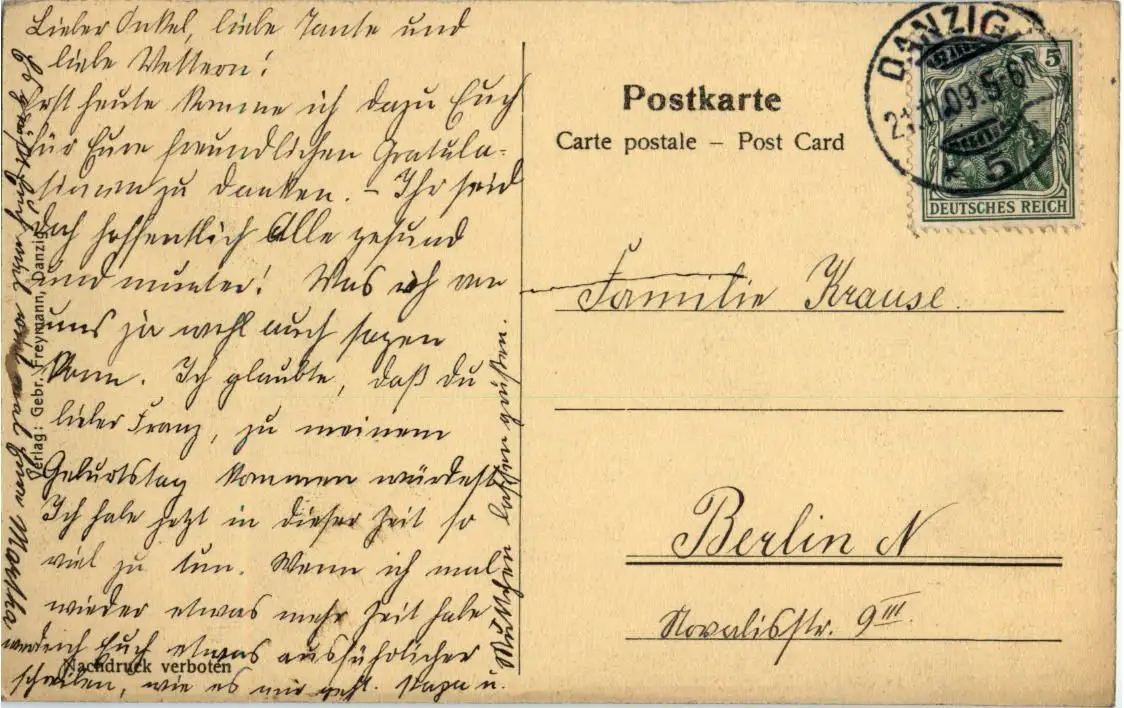 Lieber Onkel, liebe Tante und
liebe Vettern!
Erst heute komme ich dazu Euch
für Eure freundlichen Gratula-
tionen zu danken. – Ihr seid
doch hoffentlich Alle gesund
und munter! Was ich von
uns ja wohl auch sagen
kann. Ich glaubte, daß du
lieber Franz, zu meinem
Geburtstag kommen würdest
Ich habe jetzt in dieser Zeit so
viel zu tun. Wenn ich mal
wieder etwas mehr Zeit habe
werde ich Euch etwas ausführlicher
schreiben, wie es mir geht. Papa u.
Muttchen lassen grüßen.
Es grüßt Euch Martha
Verlag: Gebr. Freymann, Danzig
Nachdruck verboten
Postkarte
Carte postale – Post Card
DANZIG
21.11.09.5-6N
* 5
5
DEUTSCHES REICH
Familie Krause.
Berlin N
Novalisstr. 9III